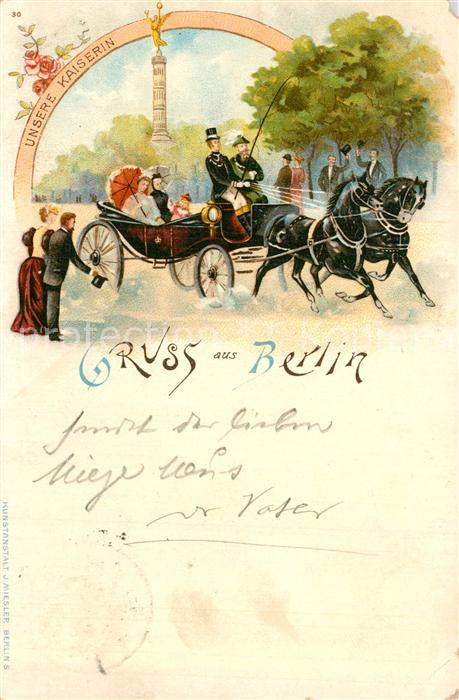 30
UNSERE KAISERIN
GRUSS aus Berlin
sendet der lieben
Vater
KUNSTANSTALT J. MIESLER, BERLIN S.